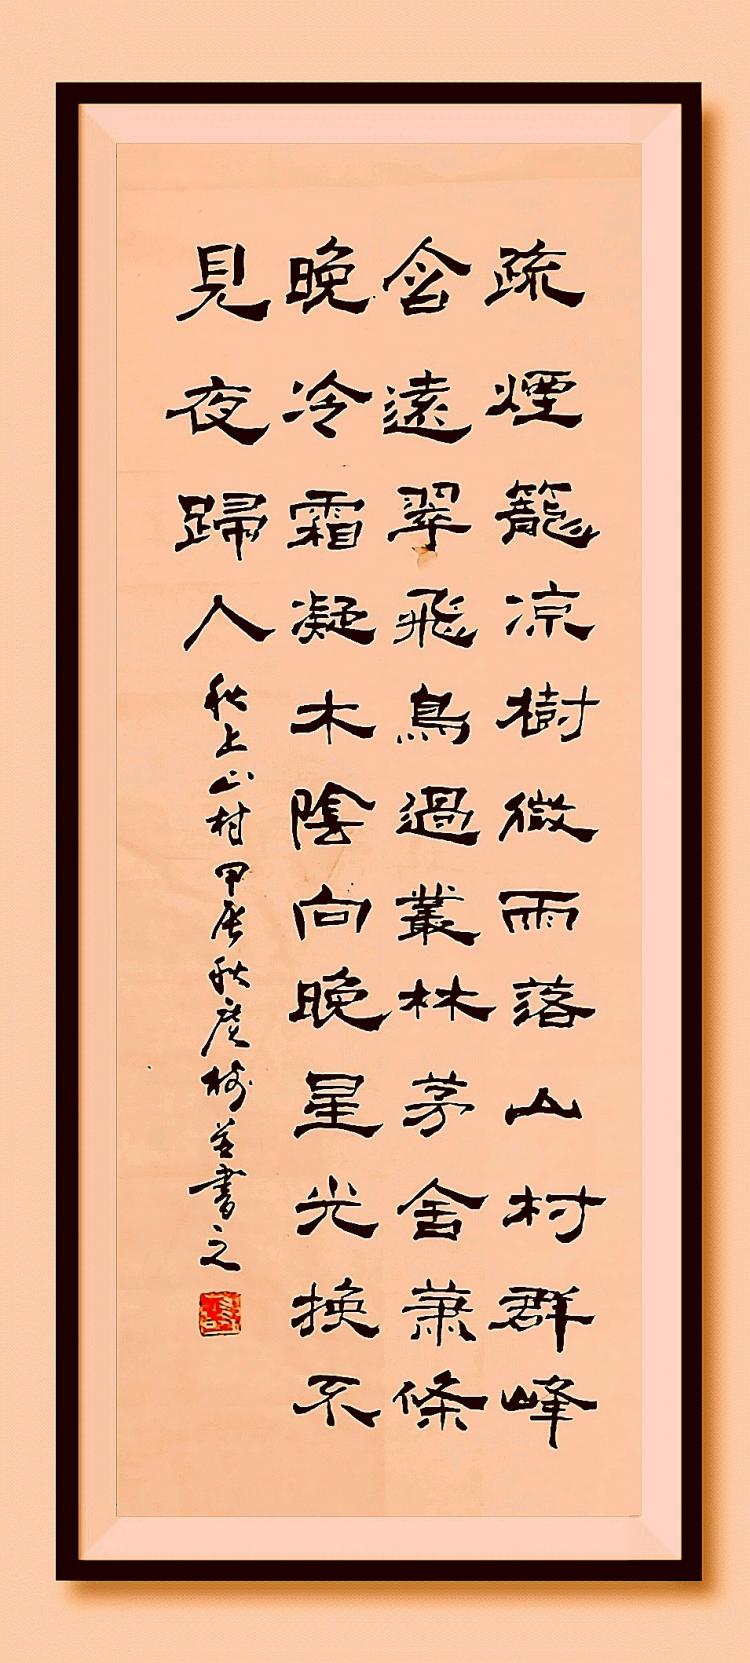 疏煙籠凉樹微雨落山村群峰
含遠翠飛鳥過叢林茅舍蕭條
晚冷霜凝木陰向晚星光換不
見夜歸人
秋上山村甲辰秋書之